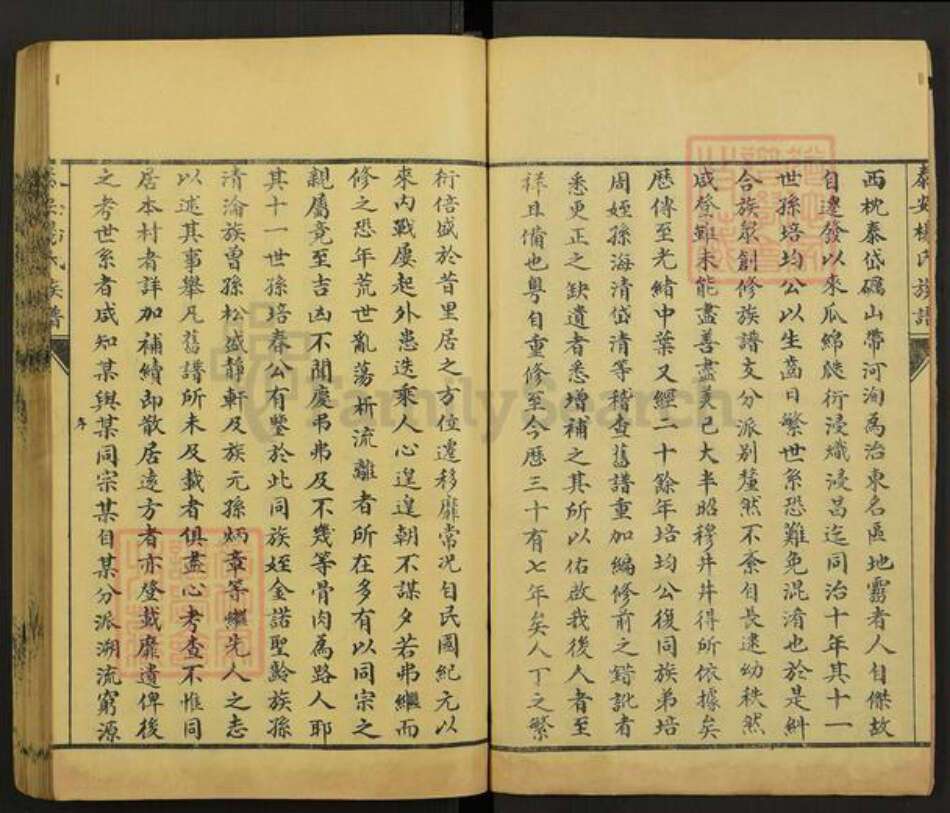 泰安楊氏族譜
西枕泰岱礪山帶河洵爲治東名區地靈者人自傑故
自遷發以來瓜綿瓞衍浸熾浸昌迄同治十年其十一
世孫培均公以生齒日繁世系恐難免混淆也於是糾
合族衆創修族譜支分派別釐然不紊自長逮幼秩然
咸登雖未能盡善盡美已大半昭穆井井得所依據矣
歷傳至光緒中葉又經二十餘年培均公復同族弟培
周姪孫海清岱清等稽查舊譜重加編修前之錯訛者
悉更正之缺遺者悉增補之其所以佑啟我後人者至
祥且備也粵自重修至今歷三十有七年矣人丁之繁
衍倍盛於昔里居之方位遷移靡常况自民國紀元以
來內戰屢起外患迭乘人心遑遑朝不謀夕若弗繼而
修之恐年荒世亂蕩析流離者所在多有以同宗之
親屬竟至吉凶不聞慶弔弗及不幾等骨肉爲路人耶
其十一世孫培春公有鑒於此同族姪金諾聖齡族孫
清淪族曾孫松盛靜軒及族元孫炳章等繼先人之志
以述其事舉凡舊譜所未及載者俱盡心考查不惟同
居本村者詳加補續即散居遠方者亦登載靡遺俾後
之考世系者咸知某與某同宗某自某分派溯流窮源
序
FamilySearch